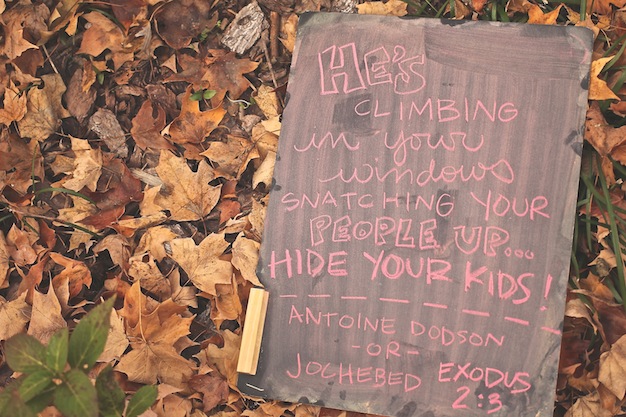 HE'S
CLIMBING
in your
windows
SNATCHING YOUR
PEOPLE UP...
HIDE YOUR KIDS!
ANTOINE DODSON
-OR-
JOCHEBED EXODUS
2:3